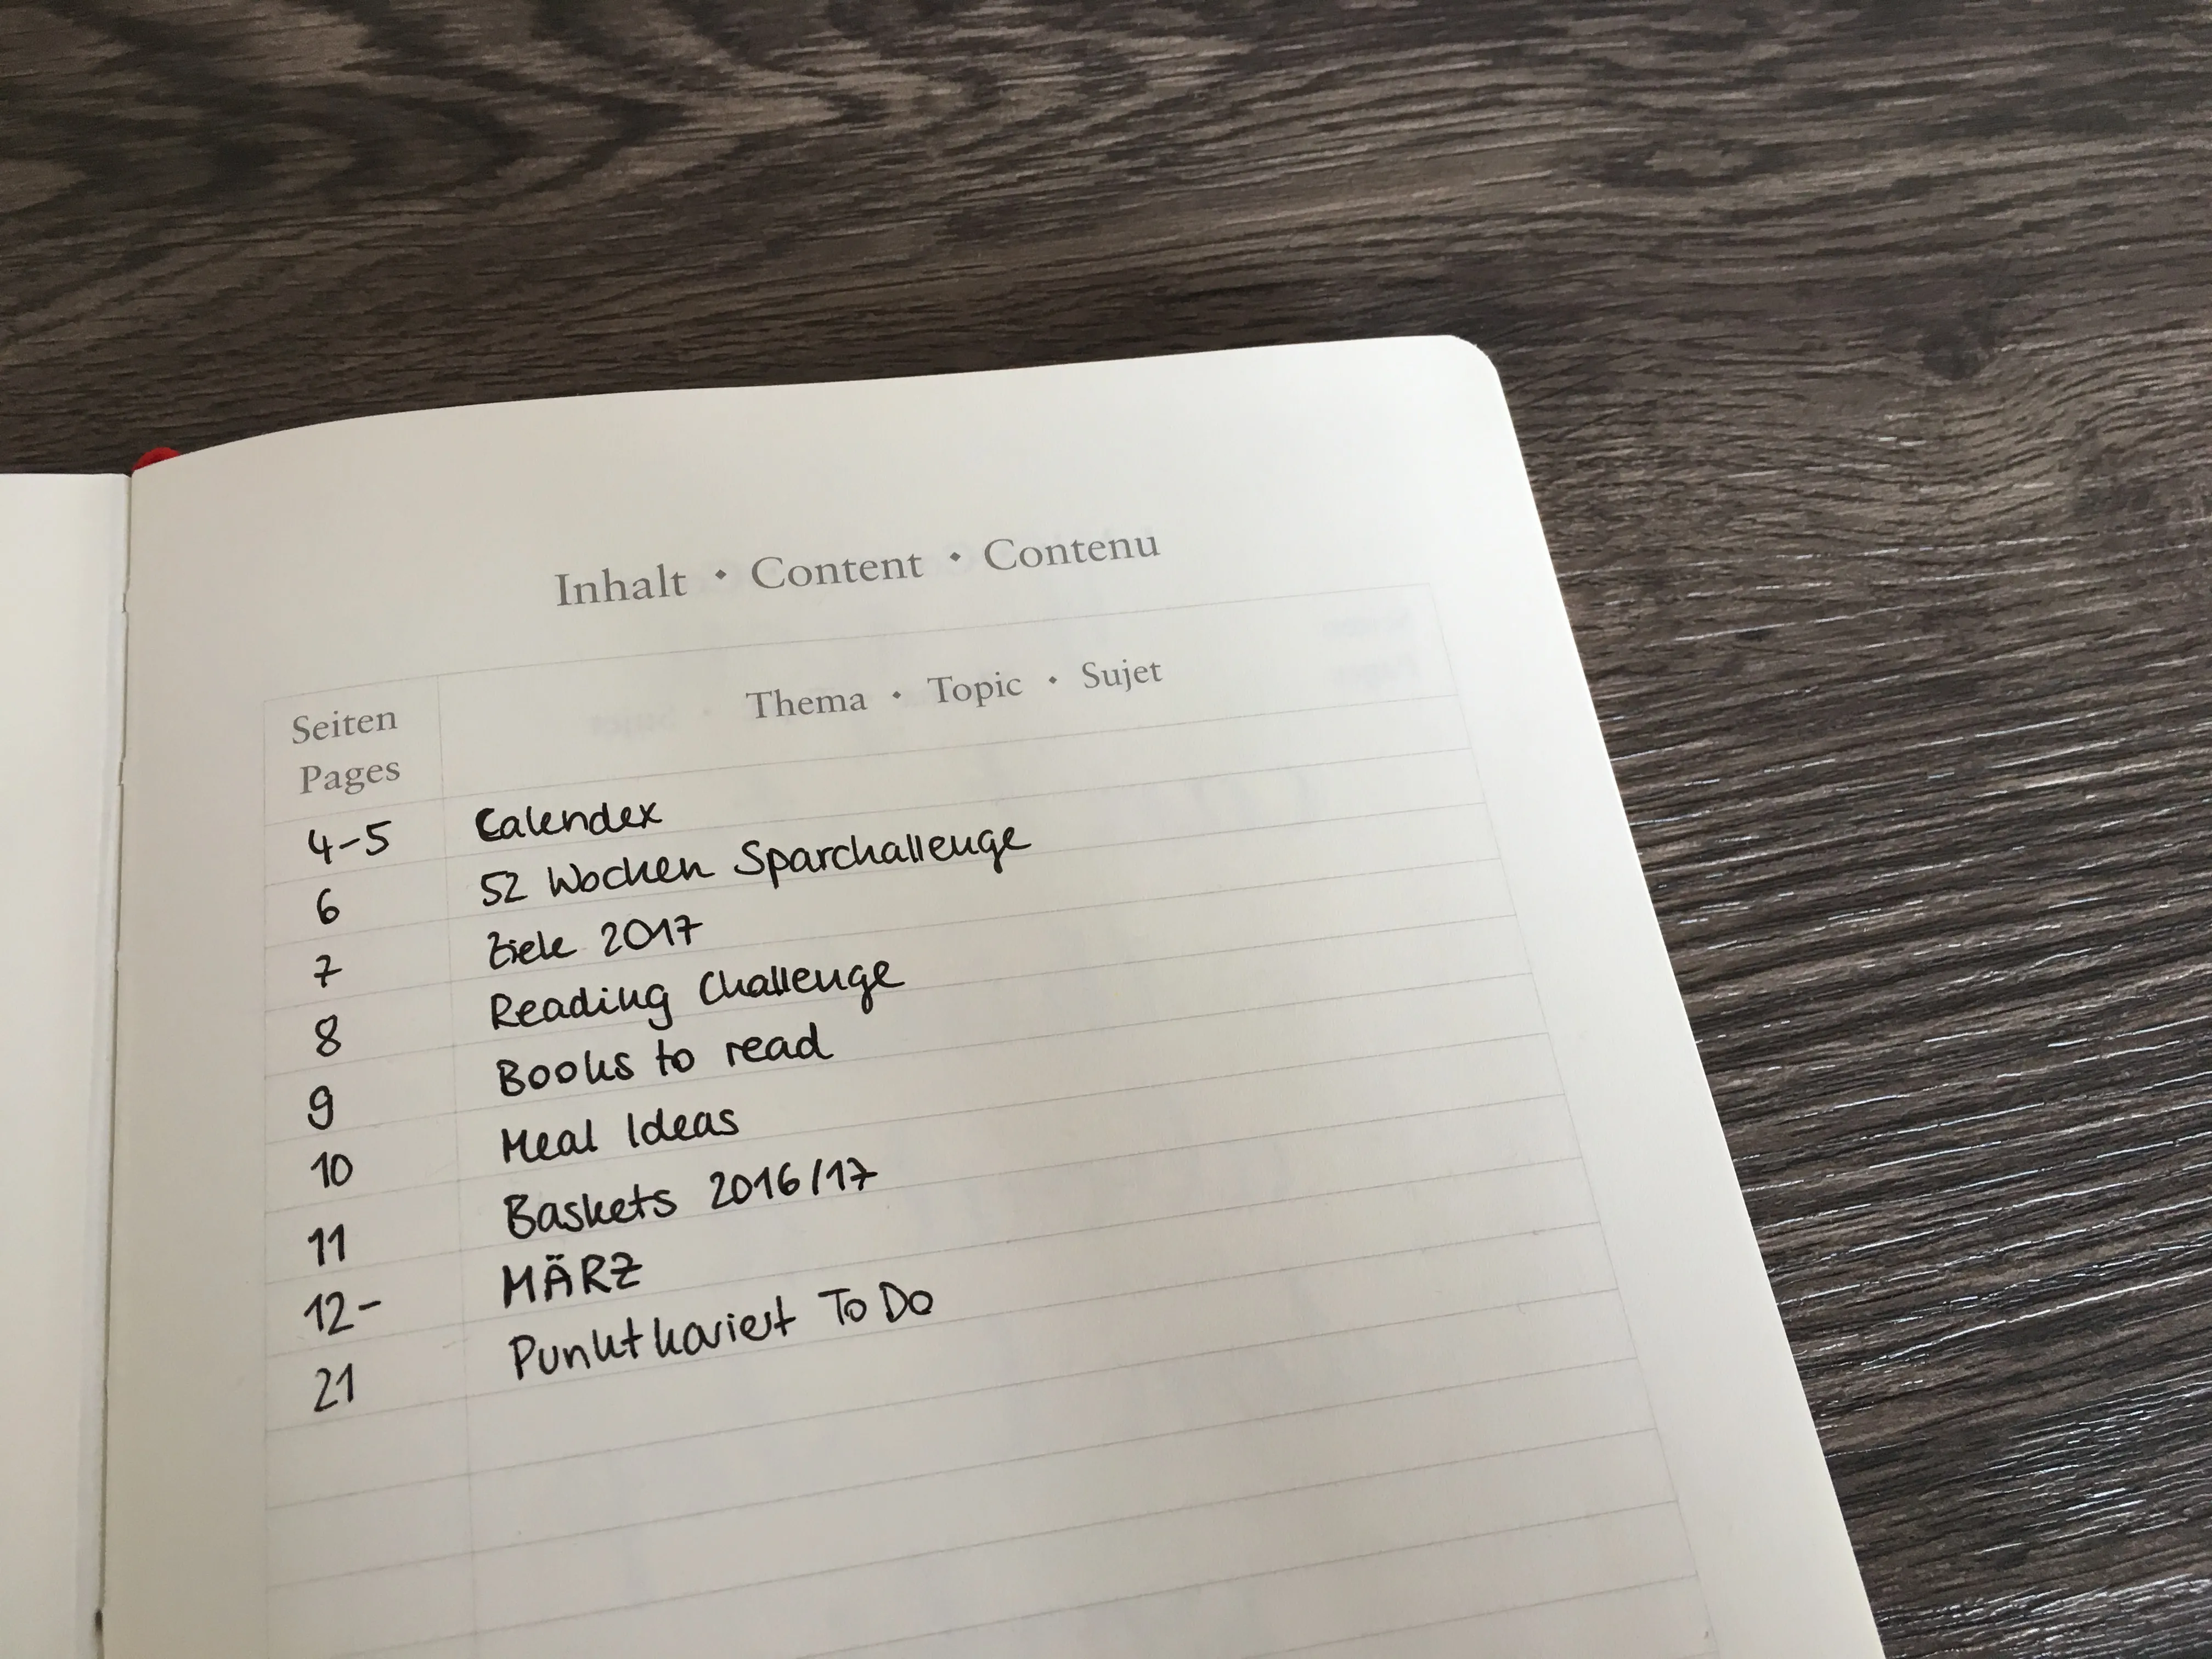 Inhalt · Content · Contenu
Seiten Pages Thema · Topic · Sujet
4-5 Calendex
6 52 Wochen Sparchallenge
7 Ziele 2017
8 Reading Challenge
9 Books to read
10 Meal Ideas
11 Baskets 2016/17
12- MÄRZ
21 Punktkariert To Do